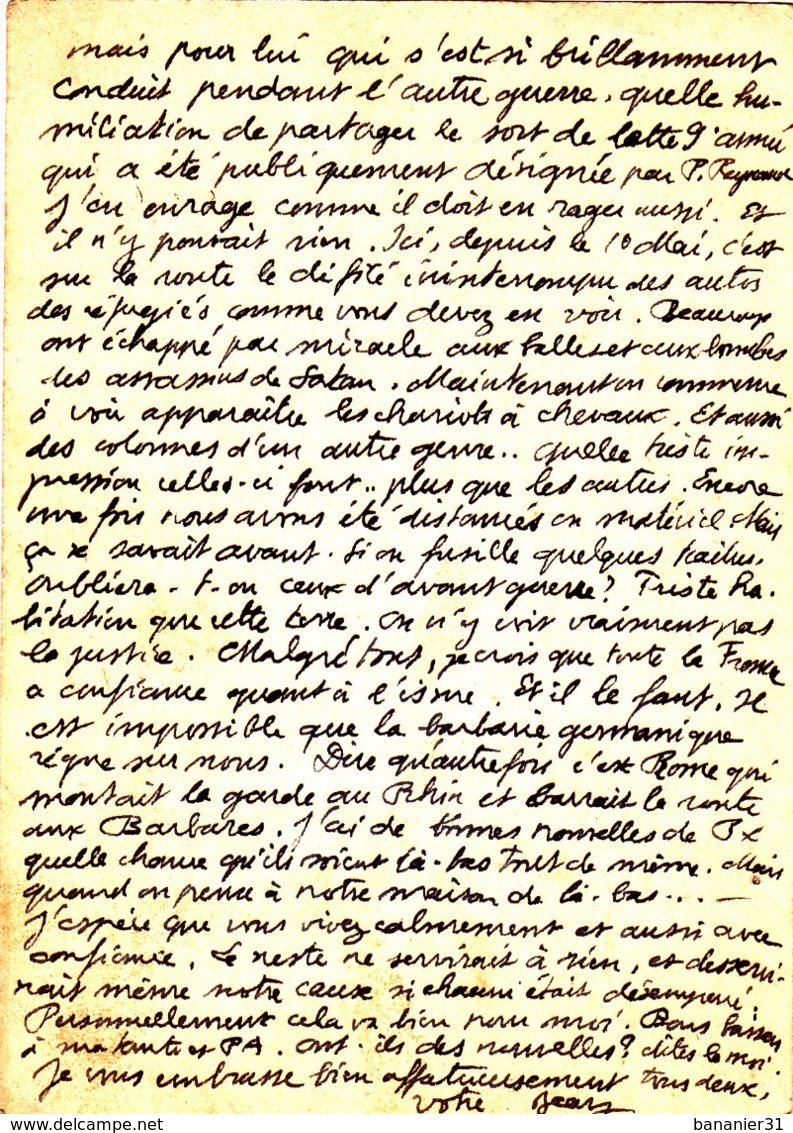 mais pour lui qui s'est si brillamment
conduit pendant l'autre guerre, quelle hu-
miliation de partager le sort de cette 9e armée
qui a été publiquement désignée par P. Reynaud
J'en enrage comme il doit en rager aussi. Et
il n'y pouvait rien. Ici, depuis le 10 Mai, c'est
sur la route le défilé ininterrompu des autos
des réfugiés comme vous devez en voir. Beaucoup
ont échappé par miracle aux balles et aux bombes
des assassins de Satan. Maintenant on commence
à voir apparaître les chariots à chevaux. Et aussi
des colonnes d'un autre genre.. quelle triste im-
pression celles-ci font.. plus que les autres. Encore
une fois nous avons été distancés en matériel Mais
ça se savait avant. Si on fusille quelques traitres,
oubliera-t-on ceux d'avant guerre? Triste ha-
bitation que cette terre. On n'y voit vraiment pas
la justice. Malgré tout, je crois que toute la France
a confiance quant à l'issue. Et il le faut. Il
est impossible que la barbarie germanique
règne sur nous. Dire qu'autrefois c'est Rome qui
montait la garde au Rhin et barrait la route
aux Barbares. J'ai de bonnes nouvelles de Px
quelle chance qu'ils soient là-bas tout de même. Mais
quand on pense à notre maison de là-bas... —
J'espère que vous vivez calmement et aussi avec
confiance. Le reste ne servirait à rien, et desservi-
rait même notre cause si chacun était désemparé
Personnellement cela va bien pour moi. Bons baisers
à ma tante et PA. Ont-ils des nouvelles? dites le moi
Je vous embrasse bien affectueusement tous deux,
votre Jean
bananier31